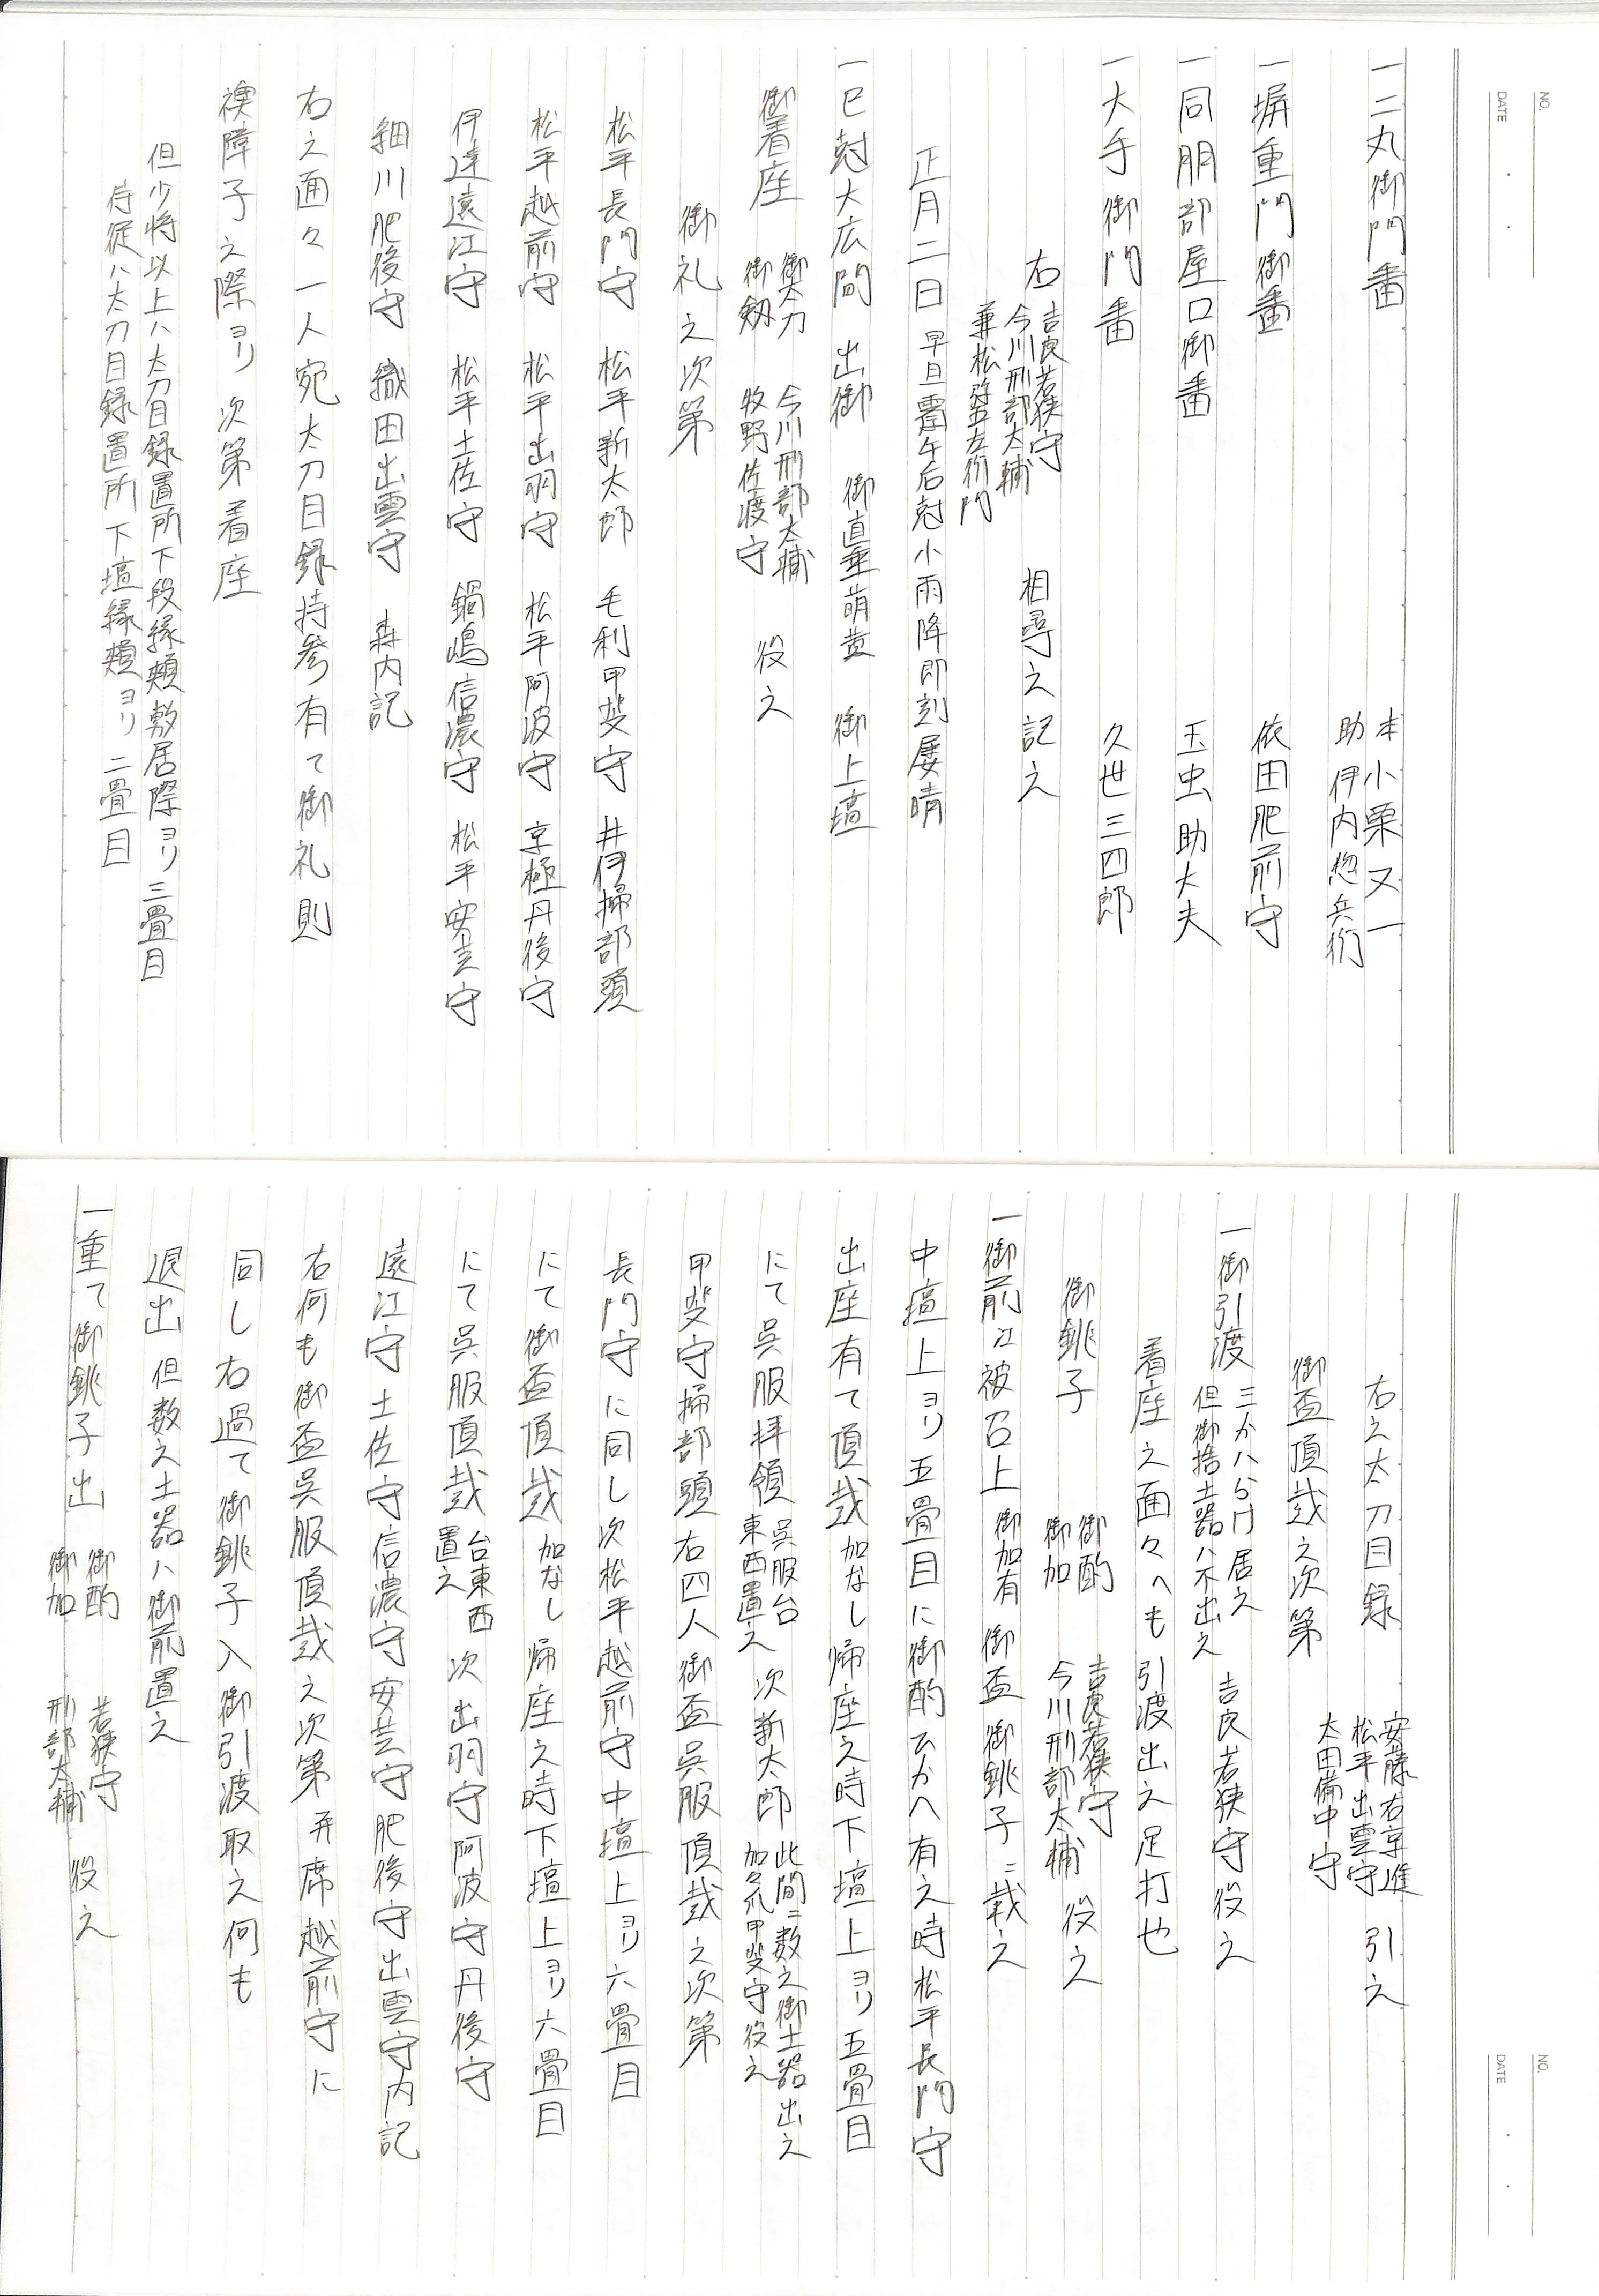 NO.
DATE
一二丸御門番 本小栗又一
助伊内惣兵衛
一塀重門御番 依田肥前守
一同朋部屋口御番 玉虫助大夫
一大手御門番 久世三四郎
右 吉良若狭守
今川刑部大輔
兼松弥五左衛門
相尋之記之
正月二日 早旦曇午后尅小雨降即刻屡晴
一巳尅大広間 出御 御直垂萌黄 御上壇
御着座 御太刀 今川刑部大輔
御剱 牧野佐渡守
役之
御礼之次第
松平長門守 松平新太郎 毛利甲斐守 井伊掃部頭
松平越前守 松平出羽守 松平阿波守 京極丹後守
伊達遠江守 松平土佐守 鍋嶋信濃守 松平安芸守
細川肥後守 織田出雲守 森内記
右之面々一人宛太刀目録持参有て御礼則
襖障子之際ヨリ次第着座
但少将以上ハ太刀目録置所下段縁頬敷居際ヨリ三畳目
侍従ハ太刀目録置所下壇縁頬ヨリ二畳目
NO.
DATE
右之太刀目録 安藤右京進
松平出雲守
太田備中守
引之
御盃頂戴之次第
一御引渡 三方ハ公門居之
但御捨土器ハ不出之
吉良若狭守役之
着座之面々へも引渡出之足打也
御銚子 御酌 吉良若狭守
御加 今川刑部大輔
役之
一御前江被召上 御加有 御盃御銚子ニ載之
中壇上ヨリ五畳目に御酌ひかへ有之時松平長門守
出座有て頂戴 加なし 帰座之時下壇上ヨリ五畳目
にて呉服拝領 呉服台
東西置之
次新太郎 此間ニ数之御土器出之
加久爪甲斐守役之
甲斐守掃部頭右四人御盃呉服頂戴之次第
長門守に同し次松平越前守中壇上ヨリ六畳目
にて御盃頂戴 加なし 帰座之時下壇上ヨリ六畳目
にて呉服頂戴 台東西
置之
次出羽守阿波守丹後守
遠江守土佐守信濃守安芸守肥後守出雲守内記
右何も御盃呉服頂戴之次第并席越前守に
同し右過て御銚子入御引渡取之何も
退出 但数之土器ハ御前置之
一重て御銚子出 御酌 若狭守
御加 刑部大輔
役之